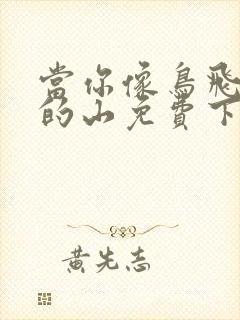 當你像鳥飛
的山免費下
黃先志